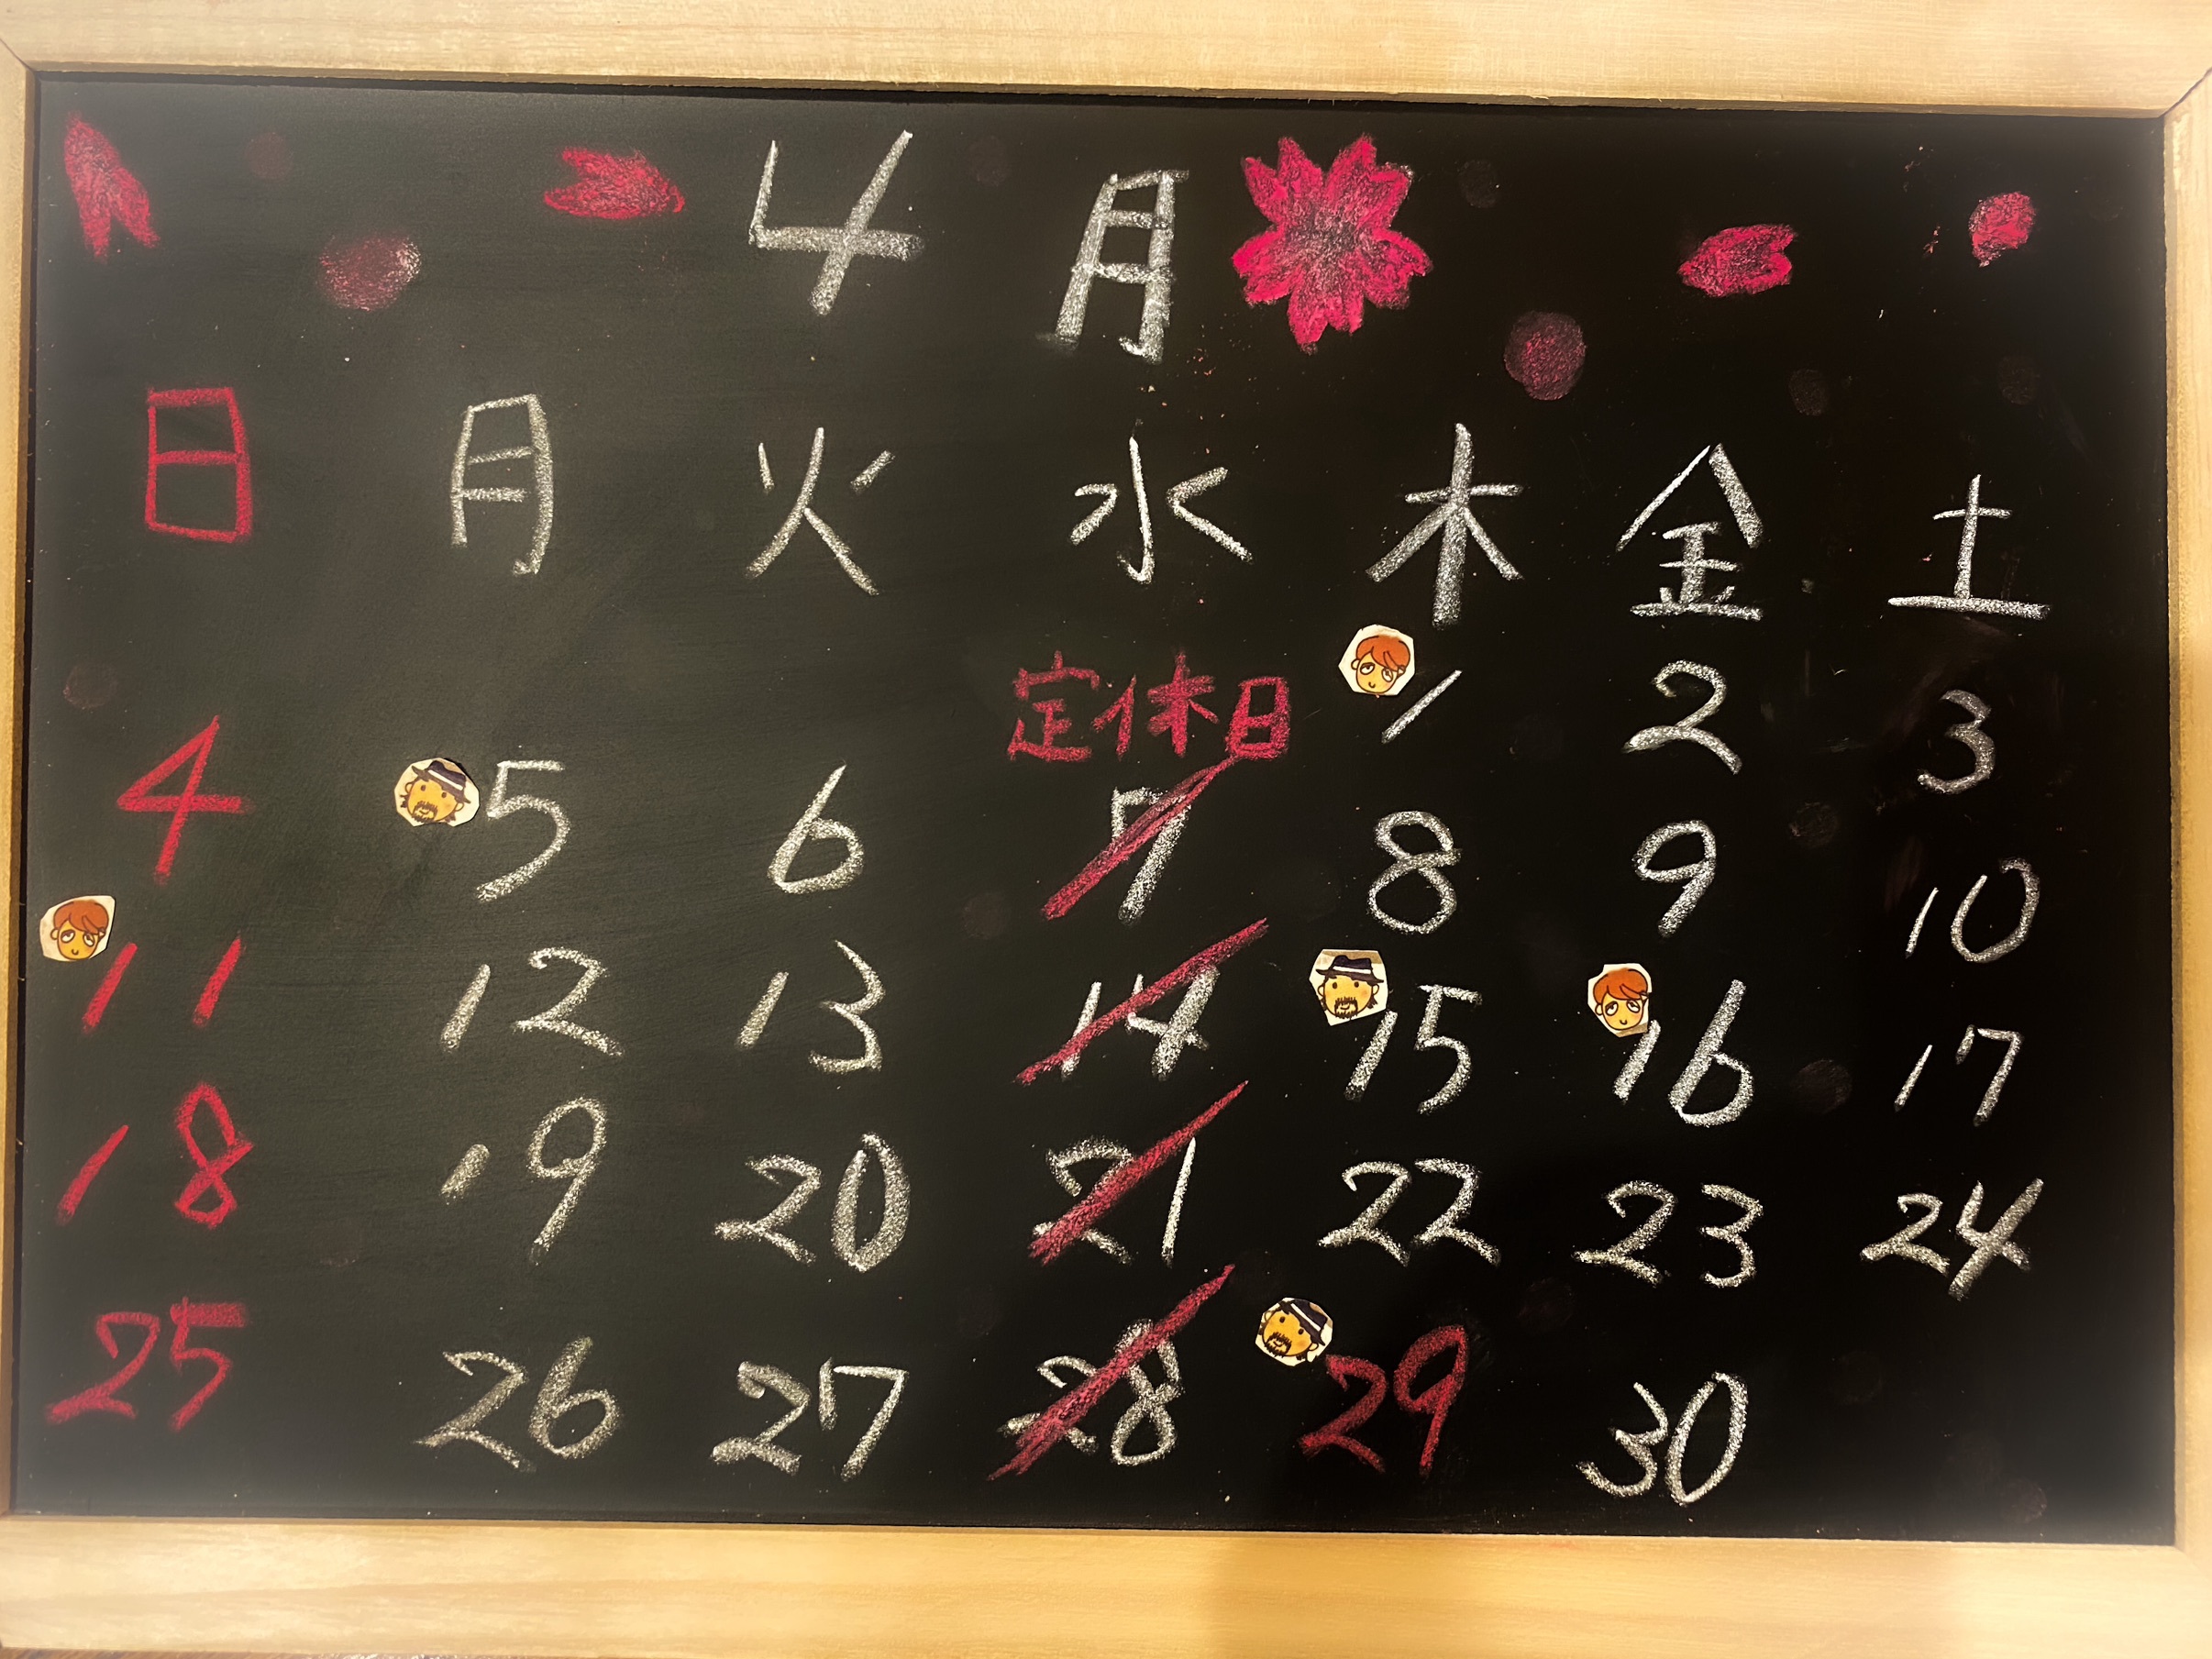 4月
日 月 火 水 木 金 土
定休日 1 2 3
4 5 6 7 8 9 10
11 12 13 14 15 16 17
18 19 20 21 22 23 24
25 26 27 28 29 30